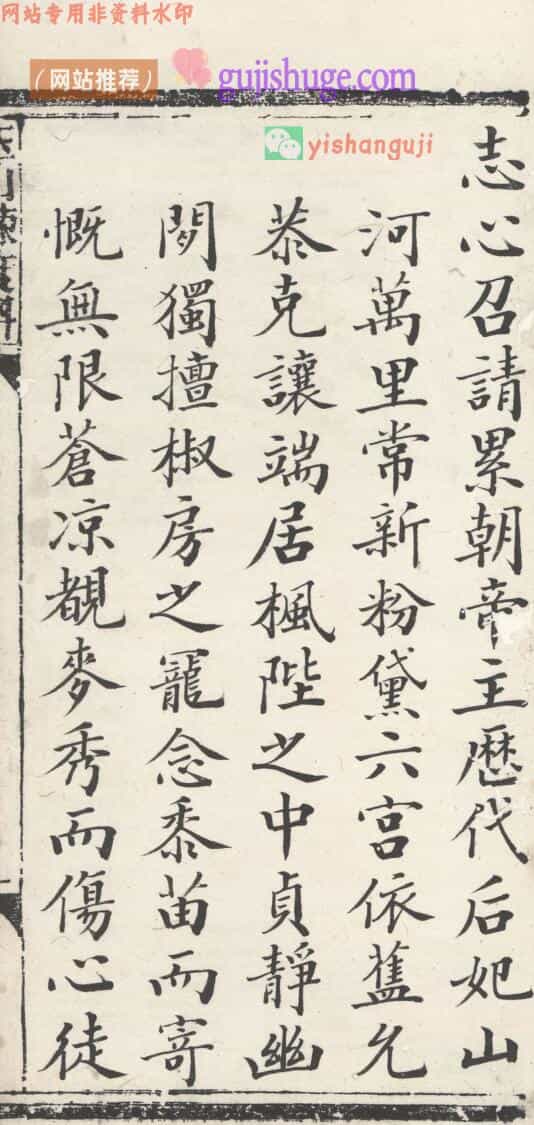 网站专用非资料水印
（网站推荐）
gujishuge.com
yishanguji
志心召請累朝帝主歴代后妃山
河萬里常新粉黛六宮依舊允
恭克讓端居楓陛之中貞靜幽
閑獨擅椒房之寵念黍苗而寄
慨無限蒼凉覩麥秀而傷心徒